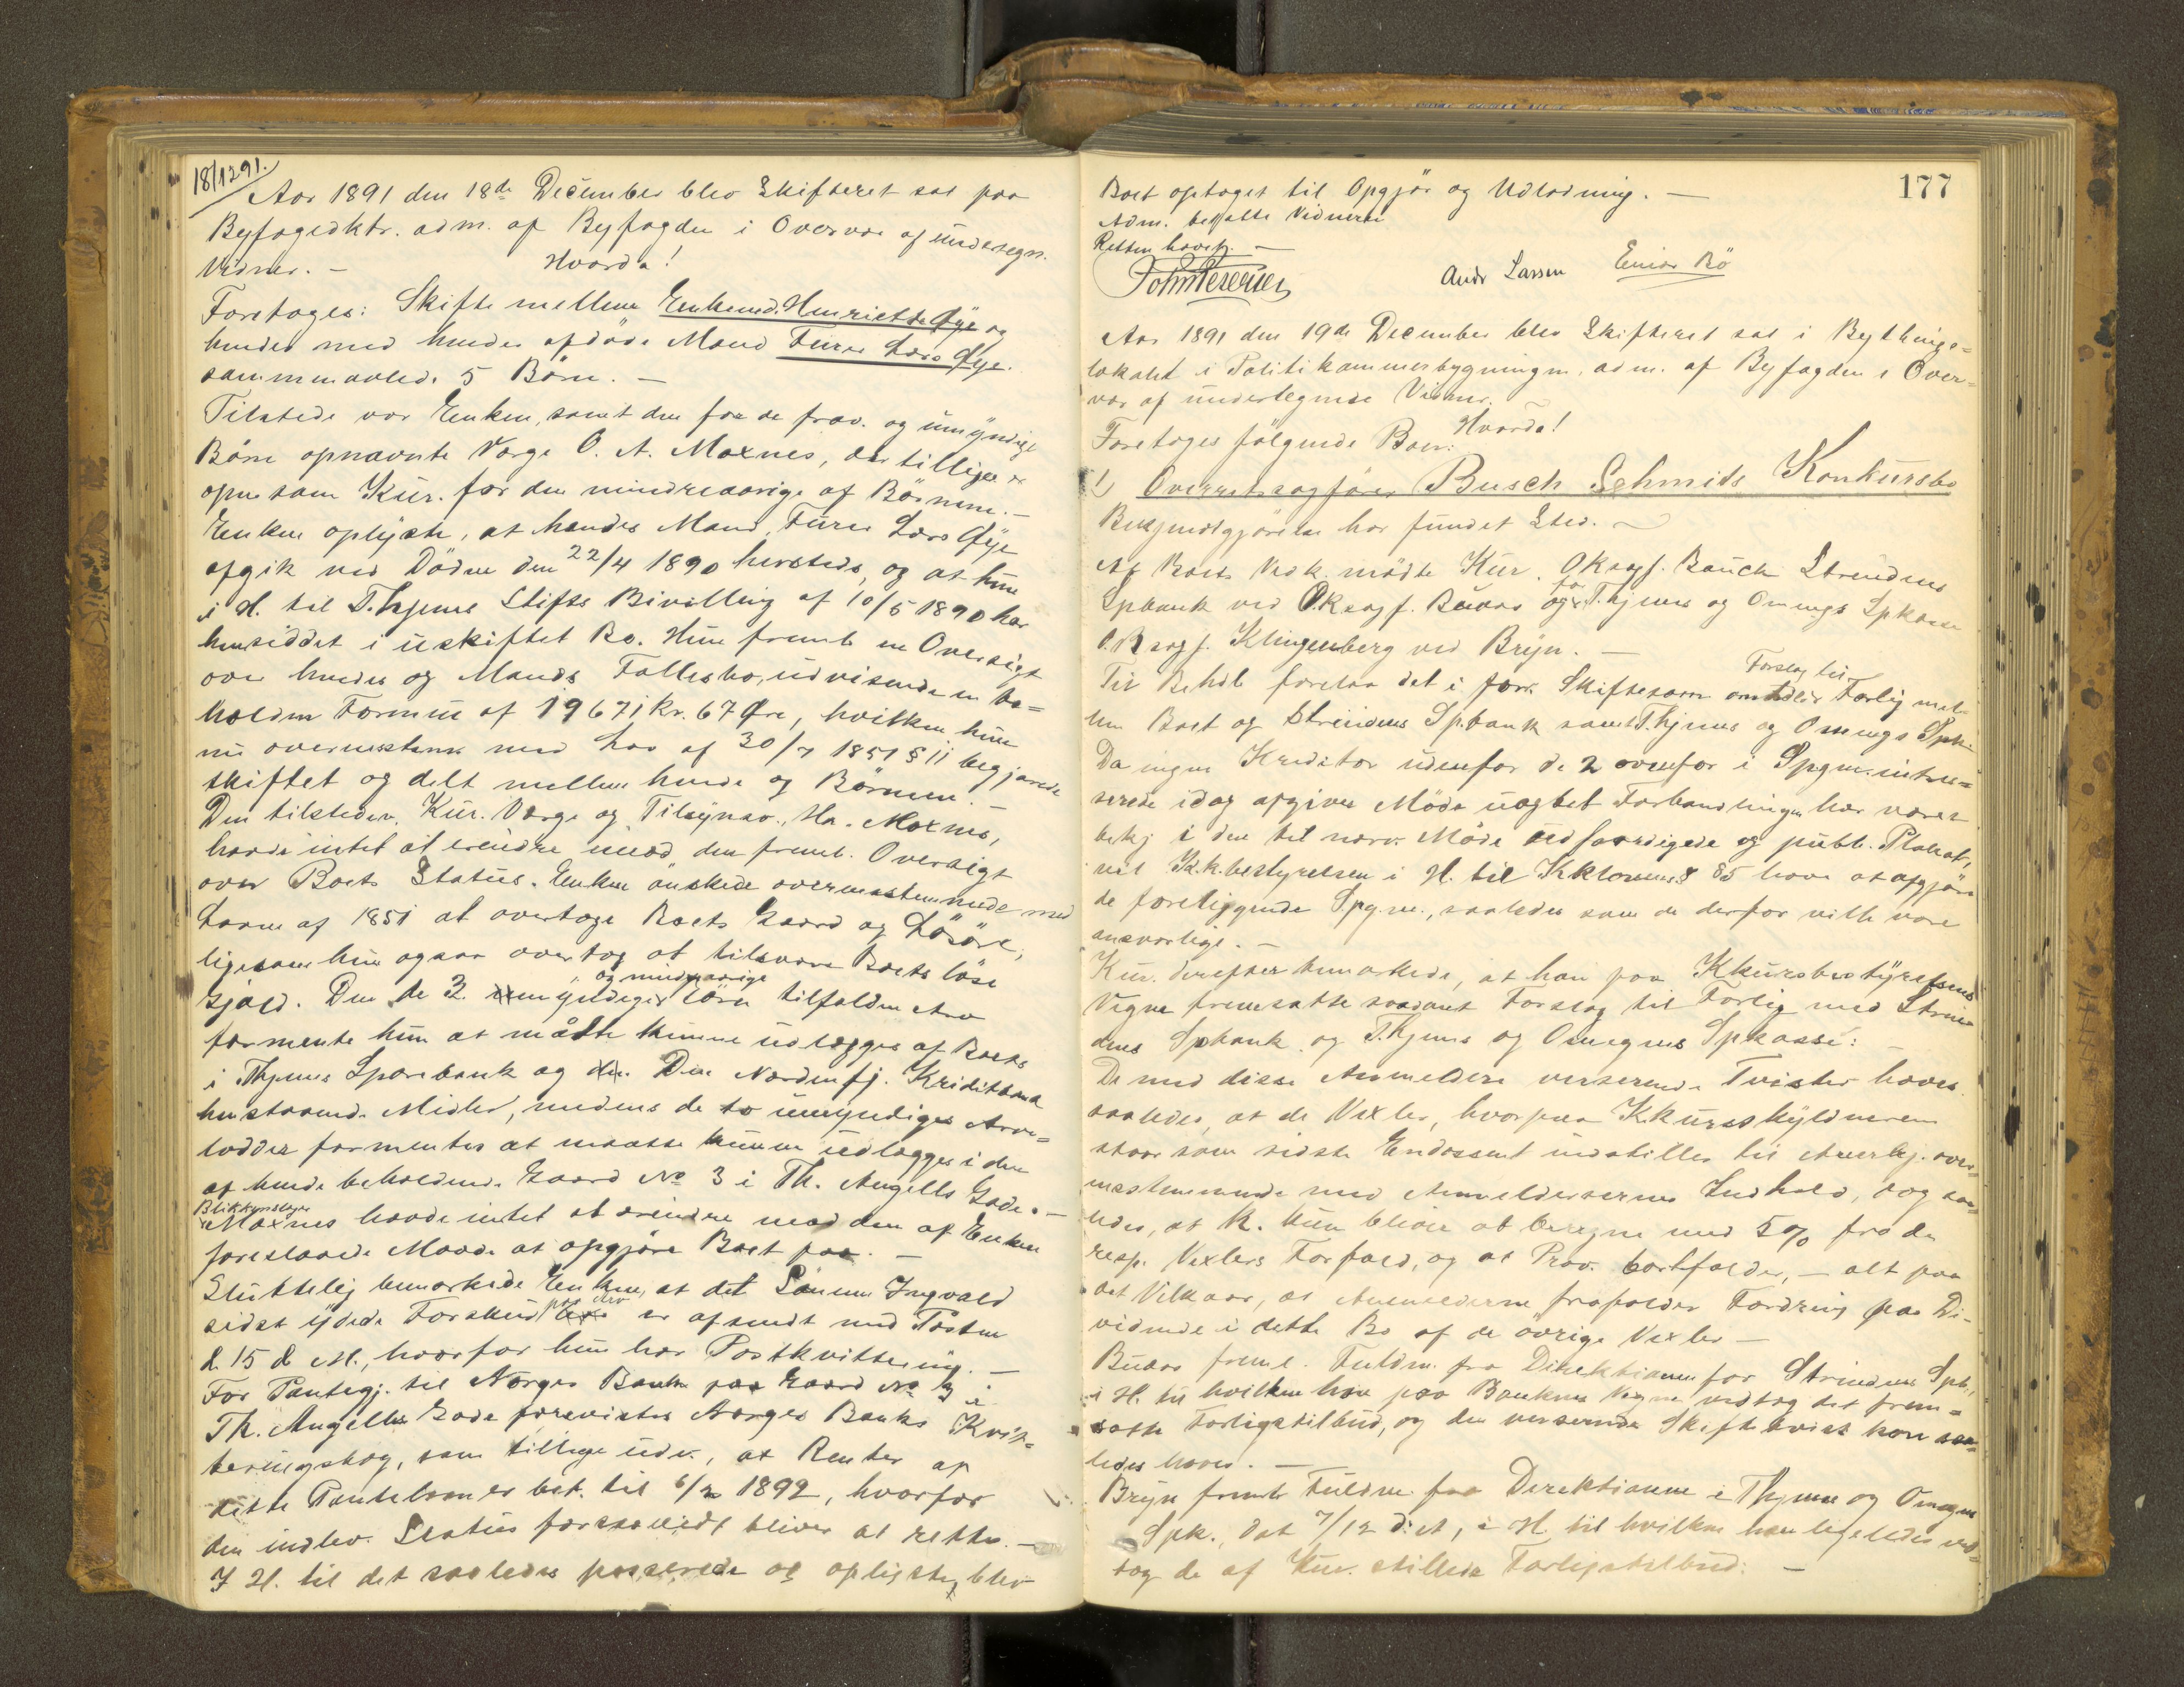 18/12 91.
Aar 1891 den 18de December blev Skifteret sat paa
Byfogedktr. adm. af Byfogden i Overvær af undertegn.
Vidner. –
Hvorda!
Foretoges: Skifte mellem Enkemd. Henriette Øye og
hendes med hendes afdöde Mand Furer Lars Øye.
sammenavlede 5 Börn. –
Tilstede var Enken, samt den for de frav. og umyndige
Börn opnævnte Værge O. A. Moxnes, der tillige er
opn. som Kur. for den mindreaarige af Börnene. –
Enken oplyste, at hendes Mand, Furer Lars Øye
afgik ved Döden den 22/4 1890 hersteds, og at hun
i H. til T.hjems Stifts Bevilling af 10/5 1890 har
hensiddet i uskiftet Bo. Hun freml. en Oversigt
over hendes og Mands Fællesbo, udvisende en be=
holden Formue af 19671 kr. 67 Øre, hvilken hun
nu overensstemm. med Lov af 30/7 1851 § 11 begjærede
skiftet og delt mellem hende og Börnene. –
Den tilstedev. Kur. Værge og Tilsynsv., Hr. Moxnes,
havde intet at erindre mod den freml. Oversigt
over Boets Status. Enken önskede overensstemmende med
Loven af 1851 at overtage Boets Gaard og Lösöre,
ligesom hun ogsaa overtog at tilsvare Boets löse
Gjæld. Den de 3 umyndige og mindreaarige Börn tilfaldne Arv
formente hun at måtte kunne udlægges af Boets
i Thjems Sparebank og den Nordenfj. Kreditbank
henstaaende Midler, medens de to umyndiges Arve=
lodder formentes at maatte kunne udlægges i den
af hende beholdende Gaard No 3 i Th. Angells Gade. –
Blikkenslager
Moxnes havde intet at erindre mod den af Enken
foreslaaede Maade at opgjöre Boet paa. –
Sluttelig bemærkede Enken, at det Sönnen Ingvald
sidst ydede Forskud paa Arv er afsendt med Posten
d. 15 d. M., hvorfor hun har Postkvittering. –
For Pantegj. til Norges Bank paa Gaard No 3 i
Th. Angells Gade forevistes Norges Banks Kvit=
teringsbog, som tillige udv., at Renter af
dette Pantelaan er bet. til 6/2 1892, hvorfor
den indlev. Status forsaavidt bliver at rette. –
I H. til det saaledes passerede og oplyste, blev
177
Boet optaget til Opgjör og Udlodning. –
Adm. betalte Vidnerne
Retten hævet. –
John Petersen
Andr Larsen
Einar Bö
Aar 1891 den 19de December blev Skifteret sat i Bythings=
lokalet i Politikammerbygningen, adm. af Byfogden i Over=
vær af undertegnede Vidner.
Hvorda!
Foretoges fölgende Boer:
1) Overretssagförer Busch Schmidts Konkursbo
Bekjendtgjörelse har fundet Sted. –
Af Boets Vedk. mödte Kur. OKsagf. Bauck. Strindens
Spbank ved OKsagf. Buaas og for T.hjems og Omegns Spkasse
O.R.sagf. Klingenberg ved Bryn. –
Til Behdl. forelaa det i forr. Skiftesam. omhdlr. Forslag til Forlig mel=
lem Boet og Strindens Spbank samt T.hjems og Omegns Spk.
Da ingen Kreditor udenfor de 2 ovenfor i Spgm. intres=
serede idag afgiver Möde uagtet Forhandlingen har været
bekj. i den til nærv. Möde udfærdigede og publ. Plakat,
vil K.k.bestyrelsen i H. til Kklovens § 85 have at afgjöre
de foreliggende Spgm., saaledes som de derfor ville være
ansvarlige. –
Kur. derefter bemærkede, at han paa Kkursbestyrelsens
Vegne fremsatte saadant Forslag til Forlig med Strin=
dens Spbank og T.hjems og Omegns Spkasse: –
De med disse Anmeldere verserende Tvister hæves
saaledes, at de Vexler, hvorpaa Kkursskyldneren
staar som sidste Endossent indstilles til Anerkj. over=
ensstemmende med Anmeldelsernes Indhold, dog saa=
ledes, at R. kun bliver at beregne med 5% fra de
resp. Vexlers Forfald, og at Prov. bortfalder, – alt paa
det Vilkaar, at Anmelderne frafalder Fordring paa Di=
vidende i dette Bo af de övrige Vexler –
Buaas freml. Fuldm. fra Direktionen for Strindens Spb.,
i H. til hvilken han paa Bankens Vegne vedtog det frem=
satte Forligstilbud, og den verserende Skiftetvist kan saa=
ledes hæves. –
Bryn freml. Fuldm. fra Direktionen i Thjems og Omegns
Spk., dat 7/12 d: A, i H. til hvilken han ligeledes ved=
tog de af Kur. stillede Forligstilbud. –